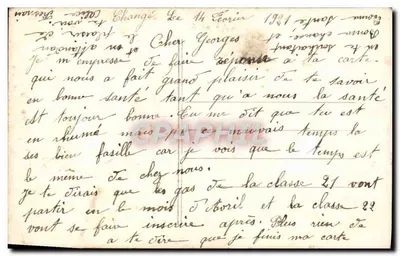 Changé Le 14 Février 1921
Cher Georges
je m'empresse de faire réponse a ta carte
qui nous a fait grand plaisir de te savoir
en bonne santé tant qu'a nous la santé
est toujour bonne. Tu me dit que tu est
en rhumé mais par ce mauvais temps la
ses bien fasille car je vois que le temps est
le même de chez nous.
Je te dirais que les gas de la classe 21 vont
partir en le mois d'Avril et la classe 22
vont se faire inscrire après. Plus rien de
a te dire que je finis ma carte
en te souhaitant
Bonne chance et
bonne santé
en attendant
le plaisir de
te voir.